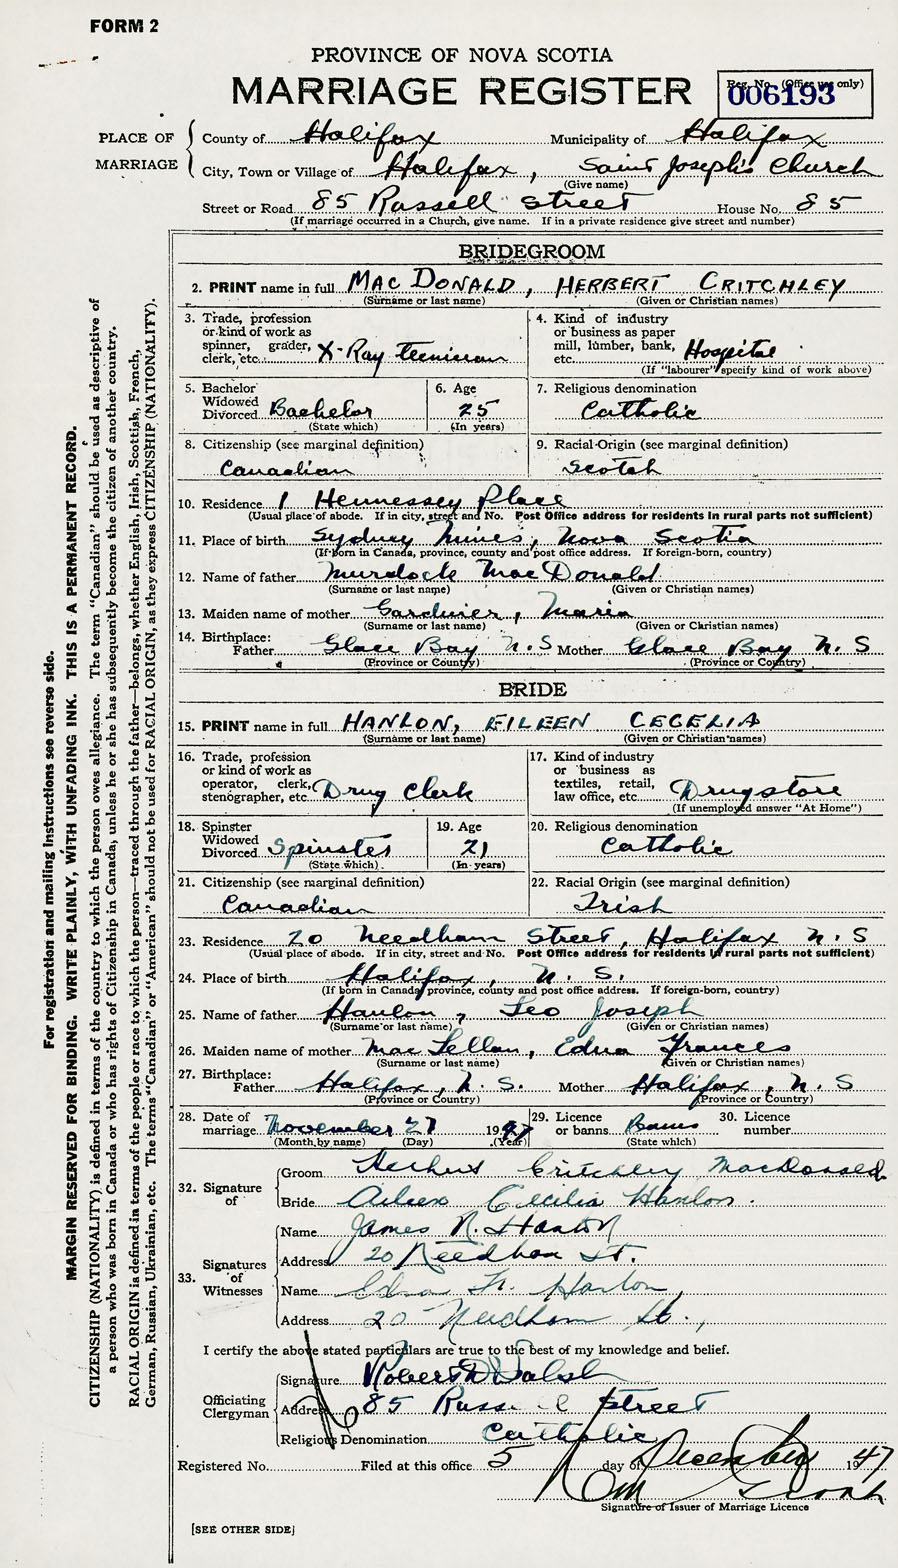 FORM 2
PROVINCE OF NOVA SCOTIA
MARRIAGE REGISTER
Reg. No. (Office use only)
006193
PLACE OF MARRIAGE
County of Halifax Municipality of Halifax
City, Town or Village of Halifax, Saint Joseph's Church
(Give name)
Street or Road 85 Russell Street House No. 85
(If marriage occurred in a Church, give name. If in a private residence give street and number)
BRIDEGROOM
2. PRINT name in full MAC DONALD, HERBERT CRITCHLEY
(Surname or last name) (Given or Christian names)
3. Trade, profession or kind of work as spinner, grader, clerk, etc. X-Ray Tecnician
4. Kind of industry or business as paper mill, lumber, bank, etc. Hospital
(If "labourer" specify kind of work above)
5. Bachelor Widowed Divorced Bachelor
(State which)
6. Age 25
(In years)
7. Religious denomination
Catholic
8. Citizenship (see marginal definition)
Canadian
9. Racial Origin (see marginal definition)
Scotch
10. Residence 1 Hennessey Place
(Usual place of abode. If in city, street and No. Post Office address for residents in rural parts not sufficient)
11. Place of birth Sydney Mines, Nova Scotia
(If born in Canada, province, county and post office address. If foreign-born, country)
12. Name of father Murdock MacDonald
(Surname or last name) (Given or Christian names)
13. Maiden name of mother Gardiner, Maria
(Surname or last name) (Given or Christian names)
14. Birthplace:
Father Glace Bay N.S Mother Glace Bay N.S
(Province or Country) (Province or Country)
BRIDE
15. PRINT name in full HANLON, EILEEN CECELIA
(Surname or last name) (Given or Christian names)
16. Trade, profession or kind of work as operator, clerk, stenographer, etc. Drug Clerk
17. Kind of industry or business as textiles, retail, law office, etc. Drugstore
(If unemployed answer "At Home")
18. Spinster Widowed Divorced Spinster
(State which)
19. Age 21
(In years)
20. Religious denomination
Catholic
21. Citizenship (see marginal definition)
Canadian
22. Racial Origin (see marginal definition)
Irish
23. Residence 20 Needham Street, Halifax N S
(Usual place of abode. If in city, street and No. Post Office address for residents in rural parts not sufficient)
24. Place of birth Halifax, N. S.
(If born in Canada province, county and post office address. If foreign-born, country)
25. Name of father Hanlon, Leo Joseph
(Surname or last name) (Given or Christian names)
26. Maiden name of mother MacLellan, Edna Frances
(Surname or last name) (Given or Christian names)
27. Birthplace:
Father Halifax, N. S. Mother Halifax, N. S
(Province or Country) (Province or Country)
28. Date of marriage November 27 1947
(Month by name) (Day) (Year)
29. Licence or banns Banns
(State which)
30. Licence number
32. Signature of
Groom Herbert Critchley MacDonald
Bride Aileen Cecilia Hanlon.
33. Signatures of Witnesses
Name James R. Hanlon
Address 20 Needham St.
Name Edna Hanlon
Address 20 Needham St.,
I certify the above stated particulars are true to the best of my knowledge and belief.
Officiating Clergyman
Signature Robert Walsh
Address 85 Russell Street
Religious Denomination Catholic
Registered No. Filed at this office 5 day of December 1947
Signature of Issuer of Marriage Licence
[SEE OTHER SIDE]
For registration and mailing instructions see reverse side.
MARGIN RESERVED FOR BINDING. WRITE PLAINLY, WITH UNFADING INK. THIS IS A PERMANENT RECORD.
CITIZENSHIP (NATIONALITY) is defined in terms of the country to which the person owes allegiance. The term "Canadian" should be used as descriptive of
a person who was born in Canada or who has rights of Citizenship in Canada, unless he or she has subsequently become the citizen of another country.
RACIAL ORIGIN is defined in terms of the people or race to which the person—traced through the father—belongs, whether English, Irish, Scottish, French,
German, Russian, Ukrainian, etc. The terms "Canadian" or "American" should not be used for RACIAL ORIGIN, as they express CITIZENSHIP (NATIONALITY).